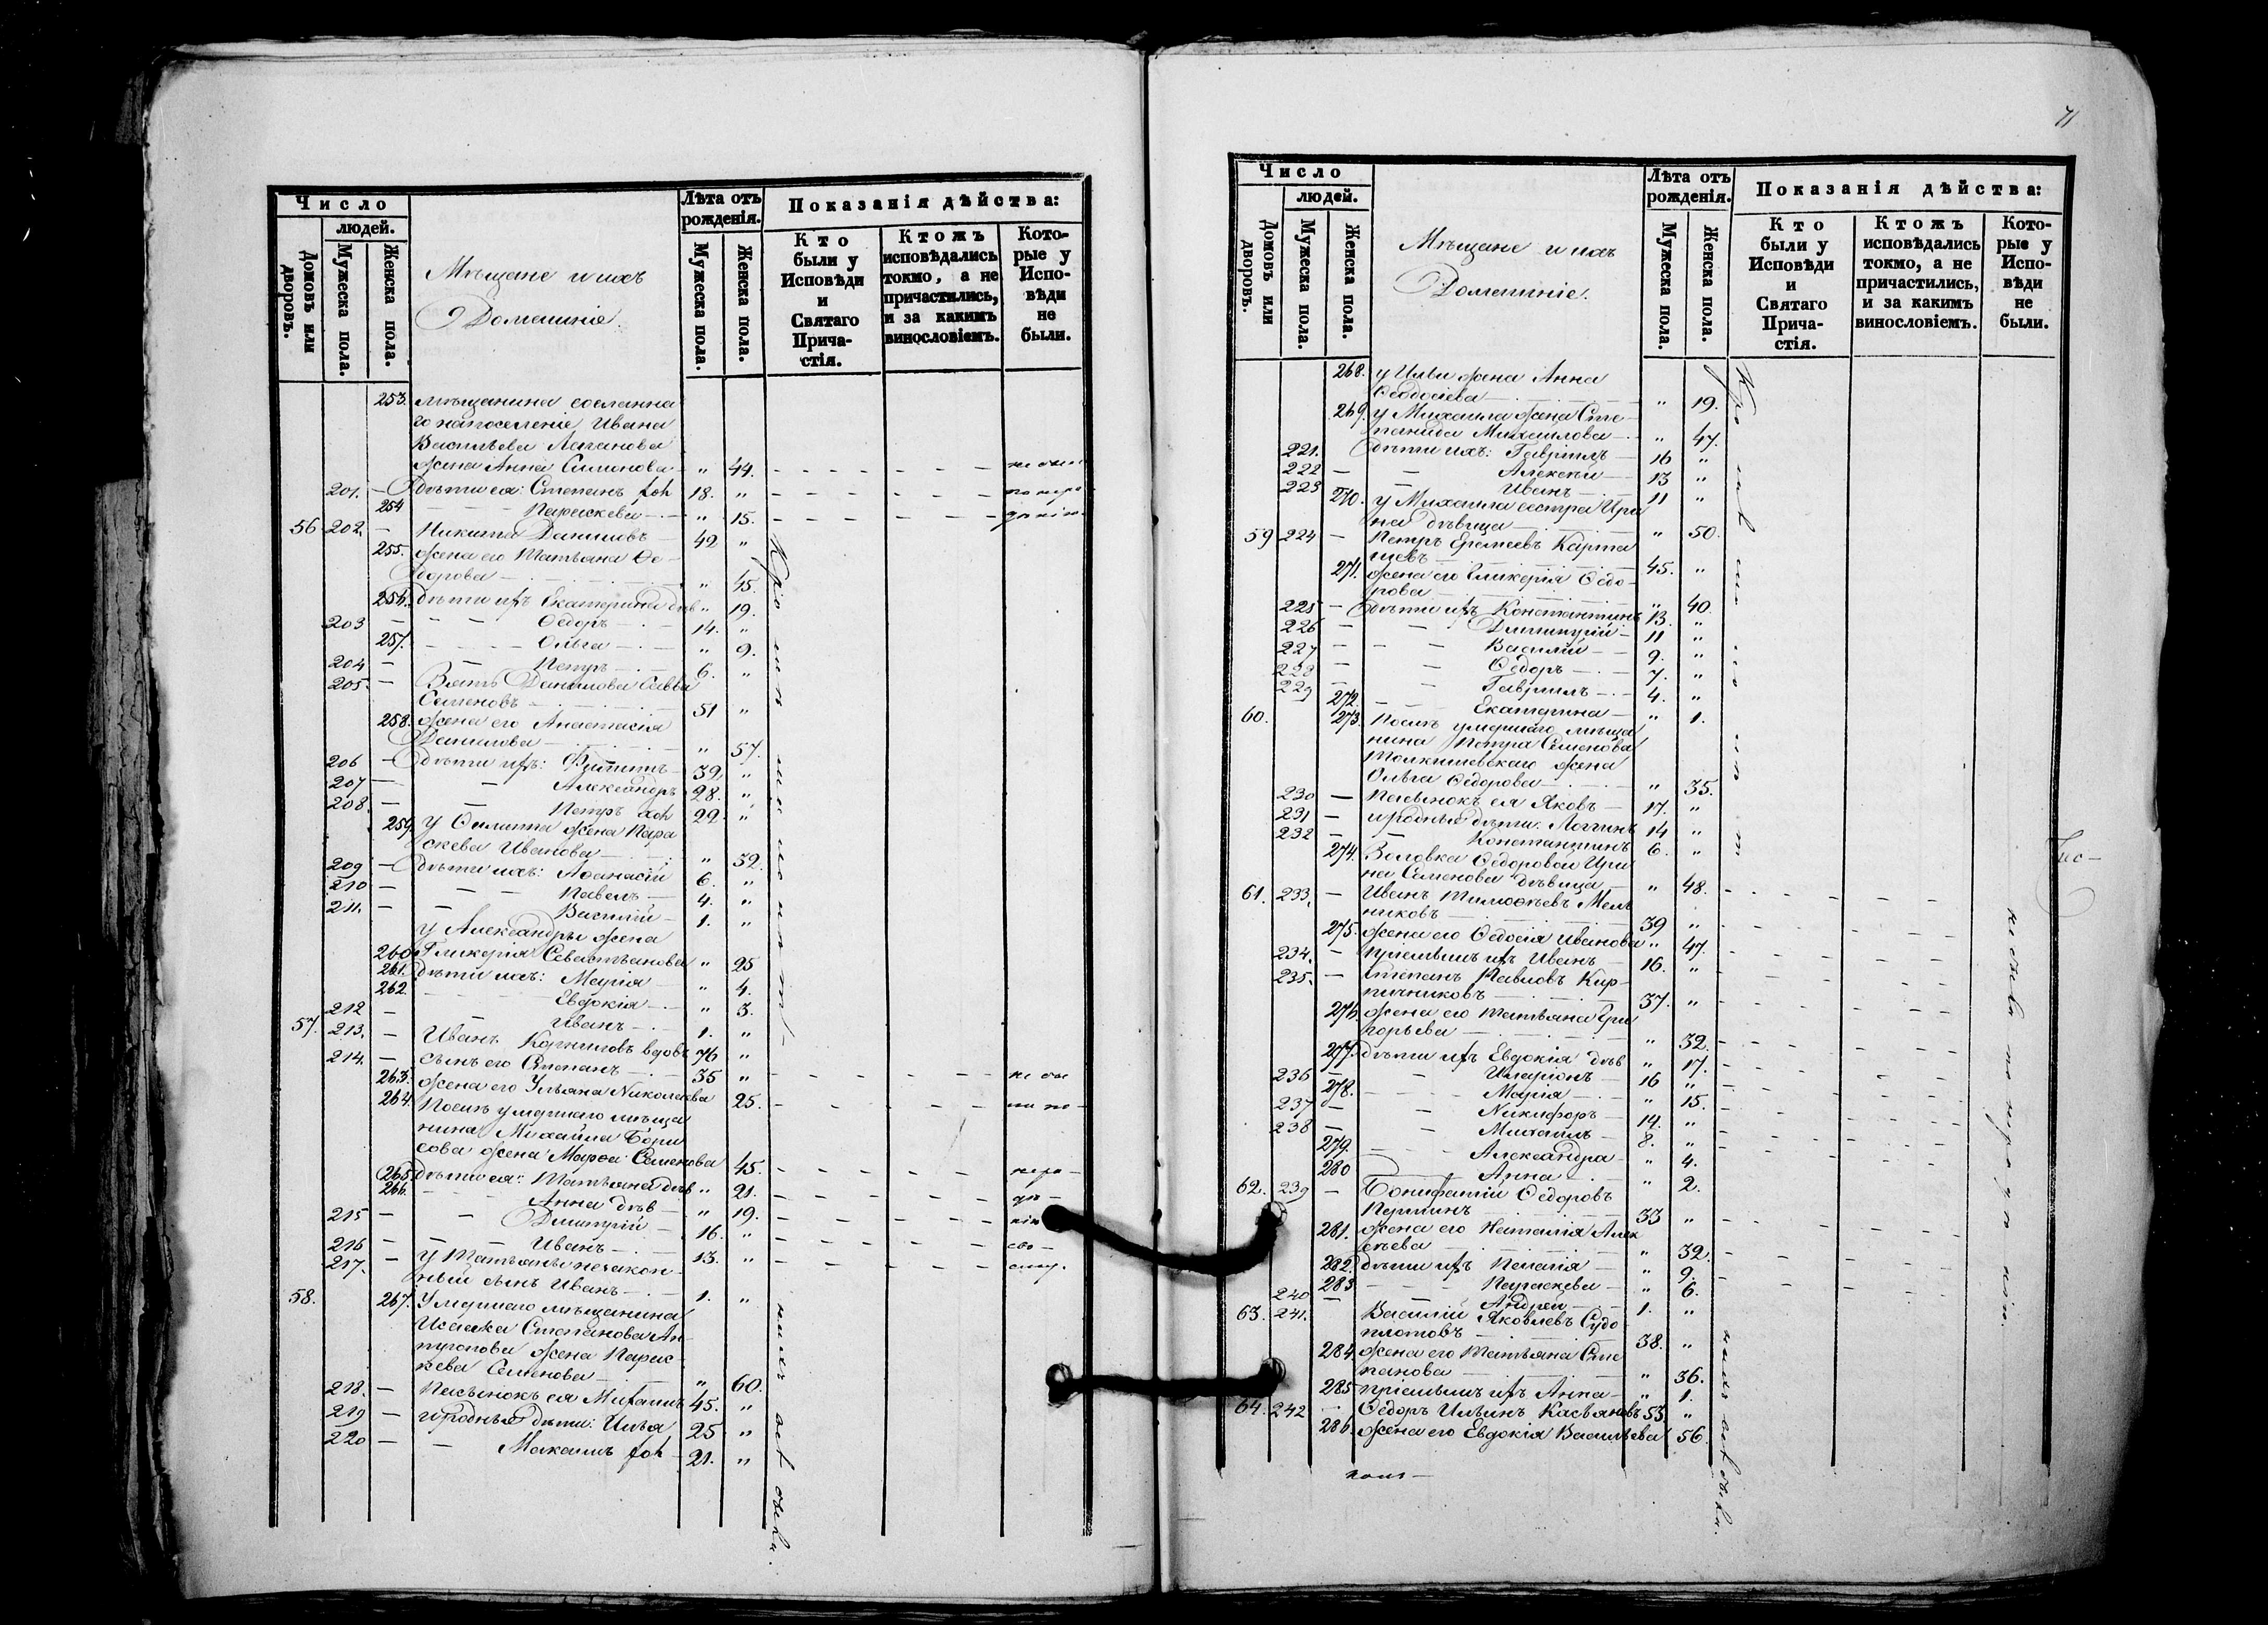 Число
людей.
Домовъ или дворовъ.
Мужеска пола.
Женска пола.
Мѣщане и ихъ
Домашніе.
Лѣта отъ рожденія.
Мужеска пола.
Женска пола.
Показанія дѣйства:
Кто были у Исповѣди и Святаго Прича-стія.
Ктожъ исповѣдались токмо, а не причастились, и за какимъ винословіемъ.
Кото-рые у Испо-вѣди не были.
253. мѣщанина сосланна
го на поселеніе Ивана
Васильева
жена Анна Симонова — " 44.
201. — Дѣти ея: Степанъ хол 18. "
254 — — Параскева — " 15.
56 202. — Никита Даниловъ — 42 "
255. жена его Татьяна Ѳе-
дорова — " 45.
256. дѣти ихъ Екатерина дѣв " 19.
203 — — Ѳедоръ — 14. "
257. — — Ольга — " 9.
204 — — Петръ — 6. "
205. — Зять Данилова Савва
Семеновъ — 51 "
258. жена его Анастасія
Данилова — " 57.
206 — Дѣти ихъ: Филиппъ — 32 "
207 — — Александръ 28. "
208. — — Петръ хол 22. "
259. У Филиппа жена Пара
скева Иванова — " 32.
209 — Дѣти ихъ: Аѳанасій 6. "
210 — — Павелъ — 4. "
211. — — Василій — 1. "
у Александры жена
260 Гликерія Севастьянова " 25
261. дѣти ихъ: Марія " 4.
262. — Евдокія — " 3.
212 — — Иванъ — 1. "
57. 213. — Иванъ Корниловъ вдовъ 76 "
214. — сынъ его Степанъ — 35 "
263. жена его Ульяна Николаева 25.
264. Посихъ умершаго мѣща
нина Михаила Бори
сова жена Марѳа Семенова 45.
265 дѣти ея: Татьяна дѣв " 21.
266. — Анна дѣв — " 19.
215 — — Дмитрій — 16. "
216 — — Иванъ — 13. "
217. — У Татьяны незакон-
ный сынъ Иванъ — 1. "
58. 267. Умершаго мѣщанина
Исаака Степанова Ан-
тропова жена Парас-
кева Семенова — " 60.
218. — Пасынокъ ея Михаилъ 45. "
219 — и родныя дѣти: Илья 25 "
220 — — Максимъ хол — 21. "
71
Число
людей.
Домовъ или дворовъ.
Мужеска пола.
Женска пола.
Мѣщане и ихъ
Домашніе.
Лѣта отъ рожденія.
Мужеска пола.
Женска пола.
Показанія дѣйства:
Кто были у Исповѣди и Святаго Прича-стія.
Ктожъ исповѣдались токмо, а не причастились, и за какимъ винословіемъ.
Кото-рые у Испо-вѣди не были.
268. у Ильи жена Анна
Ѳеодосіева — " 19.
269. у Михаила жена Сте-
панида Михайлова — " 47.
221. Дѣти ихъ: Гавріилъ — 16 "
222 — — Алексѣй — 13 "
223 — Иванъ — 11 "
270. у Михаила сестра Ири
на дѣвица — " 50.
59 224 — Петръ Еремеевъ Карта
шевъ — 45. "
271. жена его Гликерія Ѳедо-
рова — " 40.
225 — Дѣти ихъ Константинъ 13. "
226 — — Дмитрій — 11 "
227 — — Василій — 9. "
228 — — Ѳедоръ — 7. "
229 — Гавріилъ — 4. "
272. — Екатерина — " 1.
60. 273. Посихъ умершаго мѣща
нина Петра Семенова
жена
Ольга Ѳедорова — " 35.
230 — Пасынокъ ея Яковъ — 17. "
231 — и родныя дѣти: Логгинъ 14 "
232 — — Константинъ 6. "
274. Золовка Ѳедоровой Ири
на Семенова дѣвица — " 48.
61. 233. — Иванъ Тимоѳеевъ Мель
никовъ — 39 "
275. жена его Ѳедосія Иванова " 47.
234. — пріемышъ ихъ Иванъ — 16. "
235. — Степанъ Павловъ Кир-
пичниковъ — 37. "
276. жена его Татьяна Гри
горьева — " 32.
277. дѣти ихъ Евдокія дѣв " 17.
236 — Иларіонъ — 16 "
278. — — Марія — " 15.
237 — — Никифоръ — 14. "
238 — — Михаилъ — 8. "
279. — — Александра — " 4.
280 — Анна — " 2.
62. 239 — Бонифатій Ѳедоровъ
33 "
281. жена его Наталія Алек
сѣева — " 32.
282. дѣти ихъ Пелагія — " 9.
283 — — Параскева — " 6.
240 — — Андрей — 1. "
63. 241. Василій Яковлевъ Судо
платовъ — 38. "
284. жена его Татьяна Сте
панова — " 36.
285 пріемышъ ихъ Анна — " 1.
64. 242 — Ѳедоръ Ильинъ Касьяновъ 53. "
286. жена его Евдокія Васильева 56.